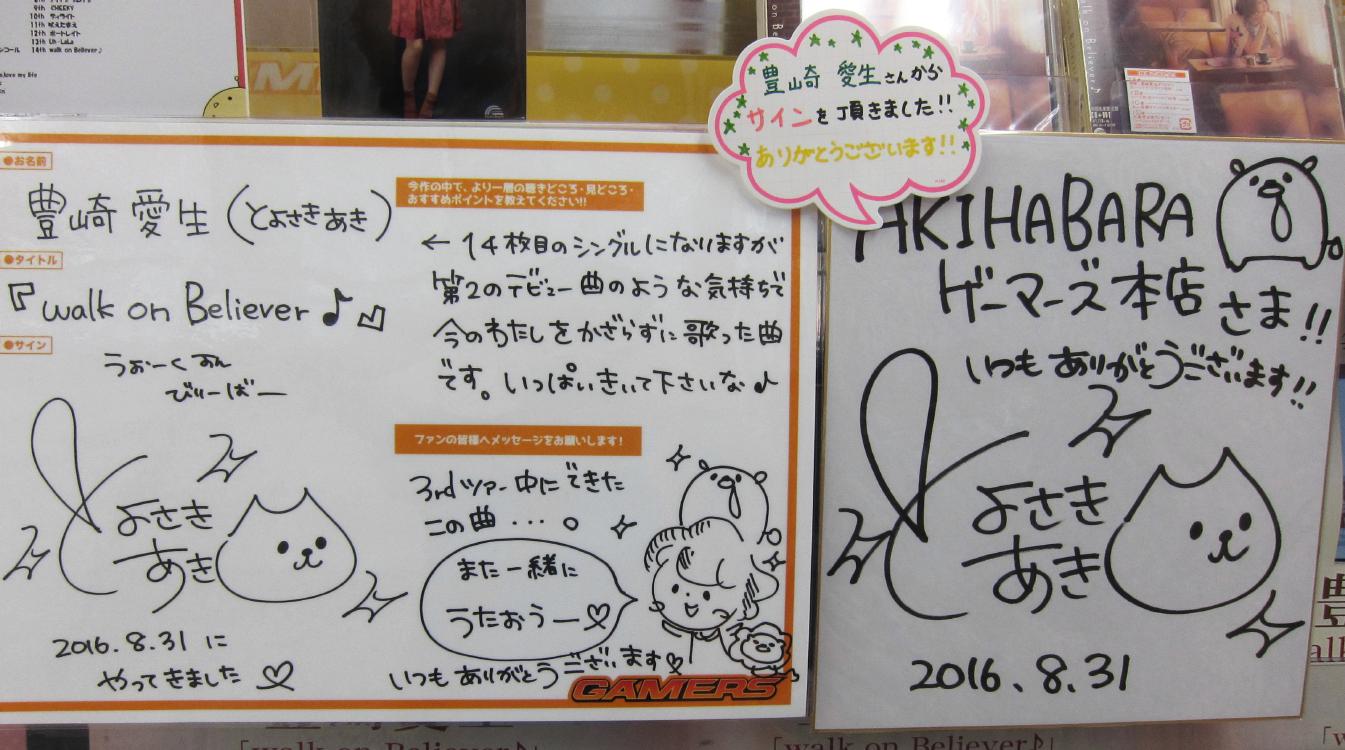 9th CHEEKY
10th ディライト
11th 吠えたまえ
12th ポートレイト
13th Uh-LaLa
14th walk on Believer♪
love my life
豊崎 愛生さんから
サインを頂きました!!
ありがとうございます!!
●お名前
豊崎 愛生(とよさきあき)
●タイトル
『walk on Believer♪』
●サイン
うぉーく おん
びりーばー
よさき
あき
2016.8.31 に
やってきました♡
今作の中で、より一層の聴きどころ・見どころ・
おすすめポイントを教えてください!!
← 14枚目のシングルになりますが
第2のデビュー曲のような気持ちで
今のわたしをかざらずに歌った曲
です。いっぱいきいて下さいな♪
ファンの皆様へメッセージをお願いします!
3rdツアー中にできた
この曲...。
また一緒に
うたおうー♡
いつもありがとうございます♡
GAMERS
AKIHABARA
ゲーマーズ本店さま!!
いつもありがとうございます!!
よさき
あき
2016.8.31
「walk on Believer♪」
「walk on Believer♪」